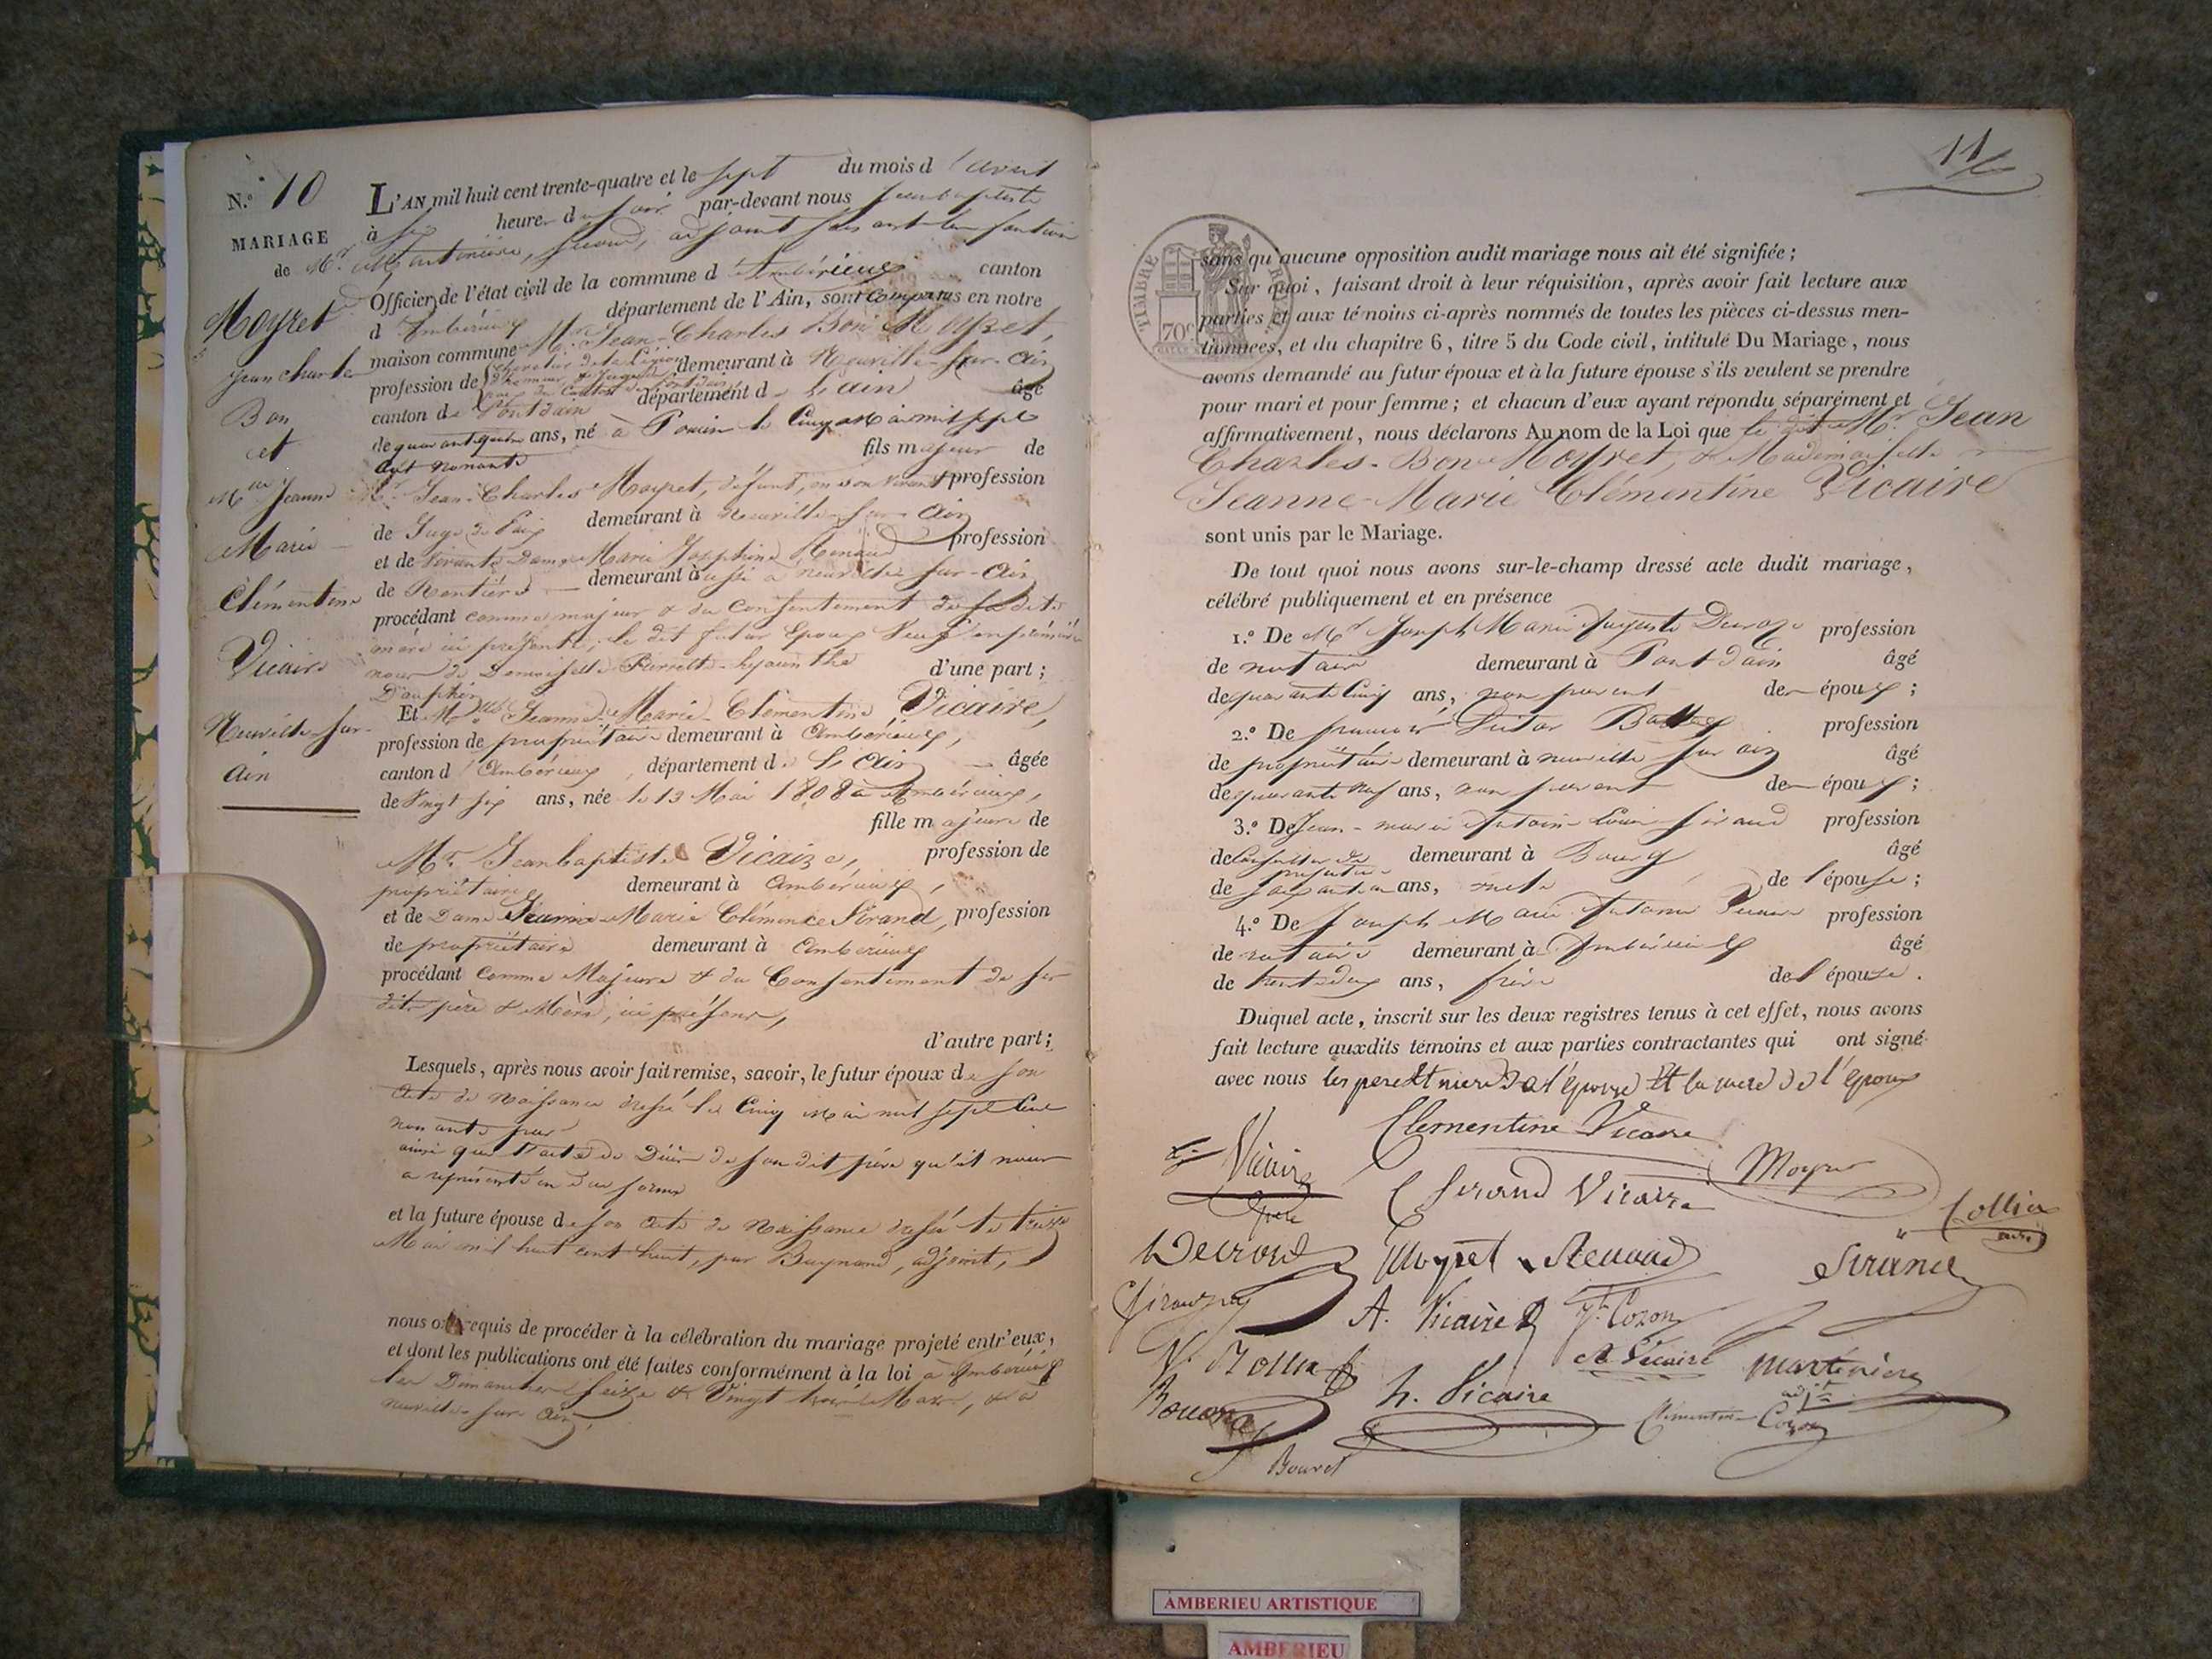 N.º 10
MARIAGE
de Mr
Moyret
Jean Charles
Bon
et
Mlle Jeanne
Marie
Clémentine
Vicaire
Neuville-sur-
Ain
L'AN mil huit cent trente-quatre et le sept du mois d'avril
à six heures du soir par-devant nous Jean baptiste
Martinière, second, adjoint faisant les fonctions
Officier de l'état civil de la commune d'Ambérieux canton
d'Ambérieux département de l'Ain, sont comparus en notre
maison commune Mr Jean-Charles Bon Moyret,
profession de chevalier de la Légion d'honneur & juge de paix du canton de Pontdain demeurant à Neuville-sur-Ain
canton de Pontdain département de L'ain âgé
de quarante quatre ans, né à Poncin le Cinq Mai mil sept
cent nonante fils majeur de
Mr Jean-Charles Moyret, défunt, en son vivant profession
de Juge de Paix demeurant à Neuville-sur-Ain
et de vivante Dame Marie Josephine Renaud profession
de Rentière demeurant aussi à neuville sur-Ain
procédant comme majeur & du Consentement de sa dite
mère ici présente, le dit futur Epoux Veuf en premières
noces de Demoiselle Pierrette-hyacinthe d'une part ;
Dauphin
Et Mlle Jeanne-Marie-Clémentine Vicaire,
profession de propriétaire demeurant à Ambérieux,
canton d'Ambérieux, département de L'Ain âgée
de Vingt six ans, née le 13 Mai 1808 à Ambérieux,
fille majeure de
Mr Jean baptiste Vicaire, profession de
propriétaire demeurant à Ambérieux,
et de Dame Jeanne-Marie Clémence Sirand, profession
de propriétaire demeurant à Ambérieux
procédant comme Majeure & du Consentement de ses
dits père & Mère, ici présens,
d'autre part ;
Lesquels, après nous avoir fait remise, savoir, le futur époux de son
acte de Naissance dressé le Cinq Mai mil sept cent
nonante par
ainsi que l'acte de Décès de son dit père qu'il nous
a représenté en due forme
et la future épouse de son acte de Naissance dressé le treize
Mai mil huit cent huit, par Buynand, adjoint,
nous ont requis de procéder à la célébration du mariage projeté entr'eux,
et dont les publications ont été faites conformément à la loi à Ambérieux
les Dimanches seize & Vingt trois Mars, & à
neuville-sur-Ain,
11
TIMBRE ROYAL
70c
sans qu'aucune opposition audit mariage nous ait été signifiée ;
Sur quoi, faisant droit à leur réquisition, après avoir fait lecture aux
parties et aux témoins ci-après nommés de toutes les pièces ci-dessus men-
tionnées, et du chapitre 6, titre 5 du Code civil, intitulé Du Mariage, nous
avons demandé au futur époux et à la future épouse s'ils veulent se prendre
pour mari et pour femme ; et chacun d'eux ayant répondu séparément et
affirmativement, nous déclarons Au nom de la Loi que le dit Mr Jean
Charles-Bon Moyret, & Mademoiselle
Jeanne-Marie Clémentine Vicaire
sont unis par le Mariage.
De tout quoi nous avons sur-le-champ dressé acte dudit mariage,
célébré publiquement et en présence
1.º De Mr Joseph Marie Auguste profession
de notaire demeurant à Pont-dain âgé
de quarante Cinq ans, non parent de époux ;
2.º De françois profession
de propriétaire demeurant à neuville sur ain âgé
de quarante neuf ans, non parent de époux ;
3.º De Jean-marie Antoine Louis Sirand profession
de Conseiller de préfecture demeurant à Bourg âgé
de ans, oncle de l'épouse ;
4.º De Joseph Marie Antoine Vicaire profession
de notaire demeurant à Ambérieux âgé
de trente deux ans, frère de l'épouse.
Duquel acte, inscrit sur les deux registres tenus à cet effet, nous avons
fait lecture auxdits témoins et aux parties contractantes qui ont signé
avec nous les pere Et mere de l'épouse Et la mere de l'époux
Clementine Vicaire
Vicaire
père
Sirand Vicaire
Moyret
Collier
Moyret Renaud
Sirand
A. Vicaire
Cozon
A Vicaire
Martinière
adjt
h. Vicaire
Clémentine Cozon
Bouvet
AMBERIEU ARTISTIQUE
AMBERIEU